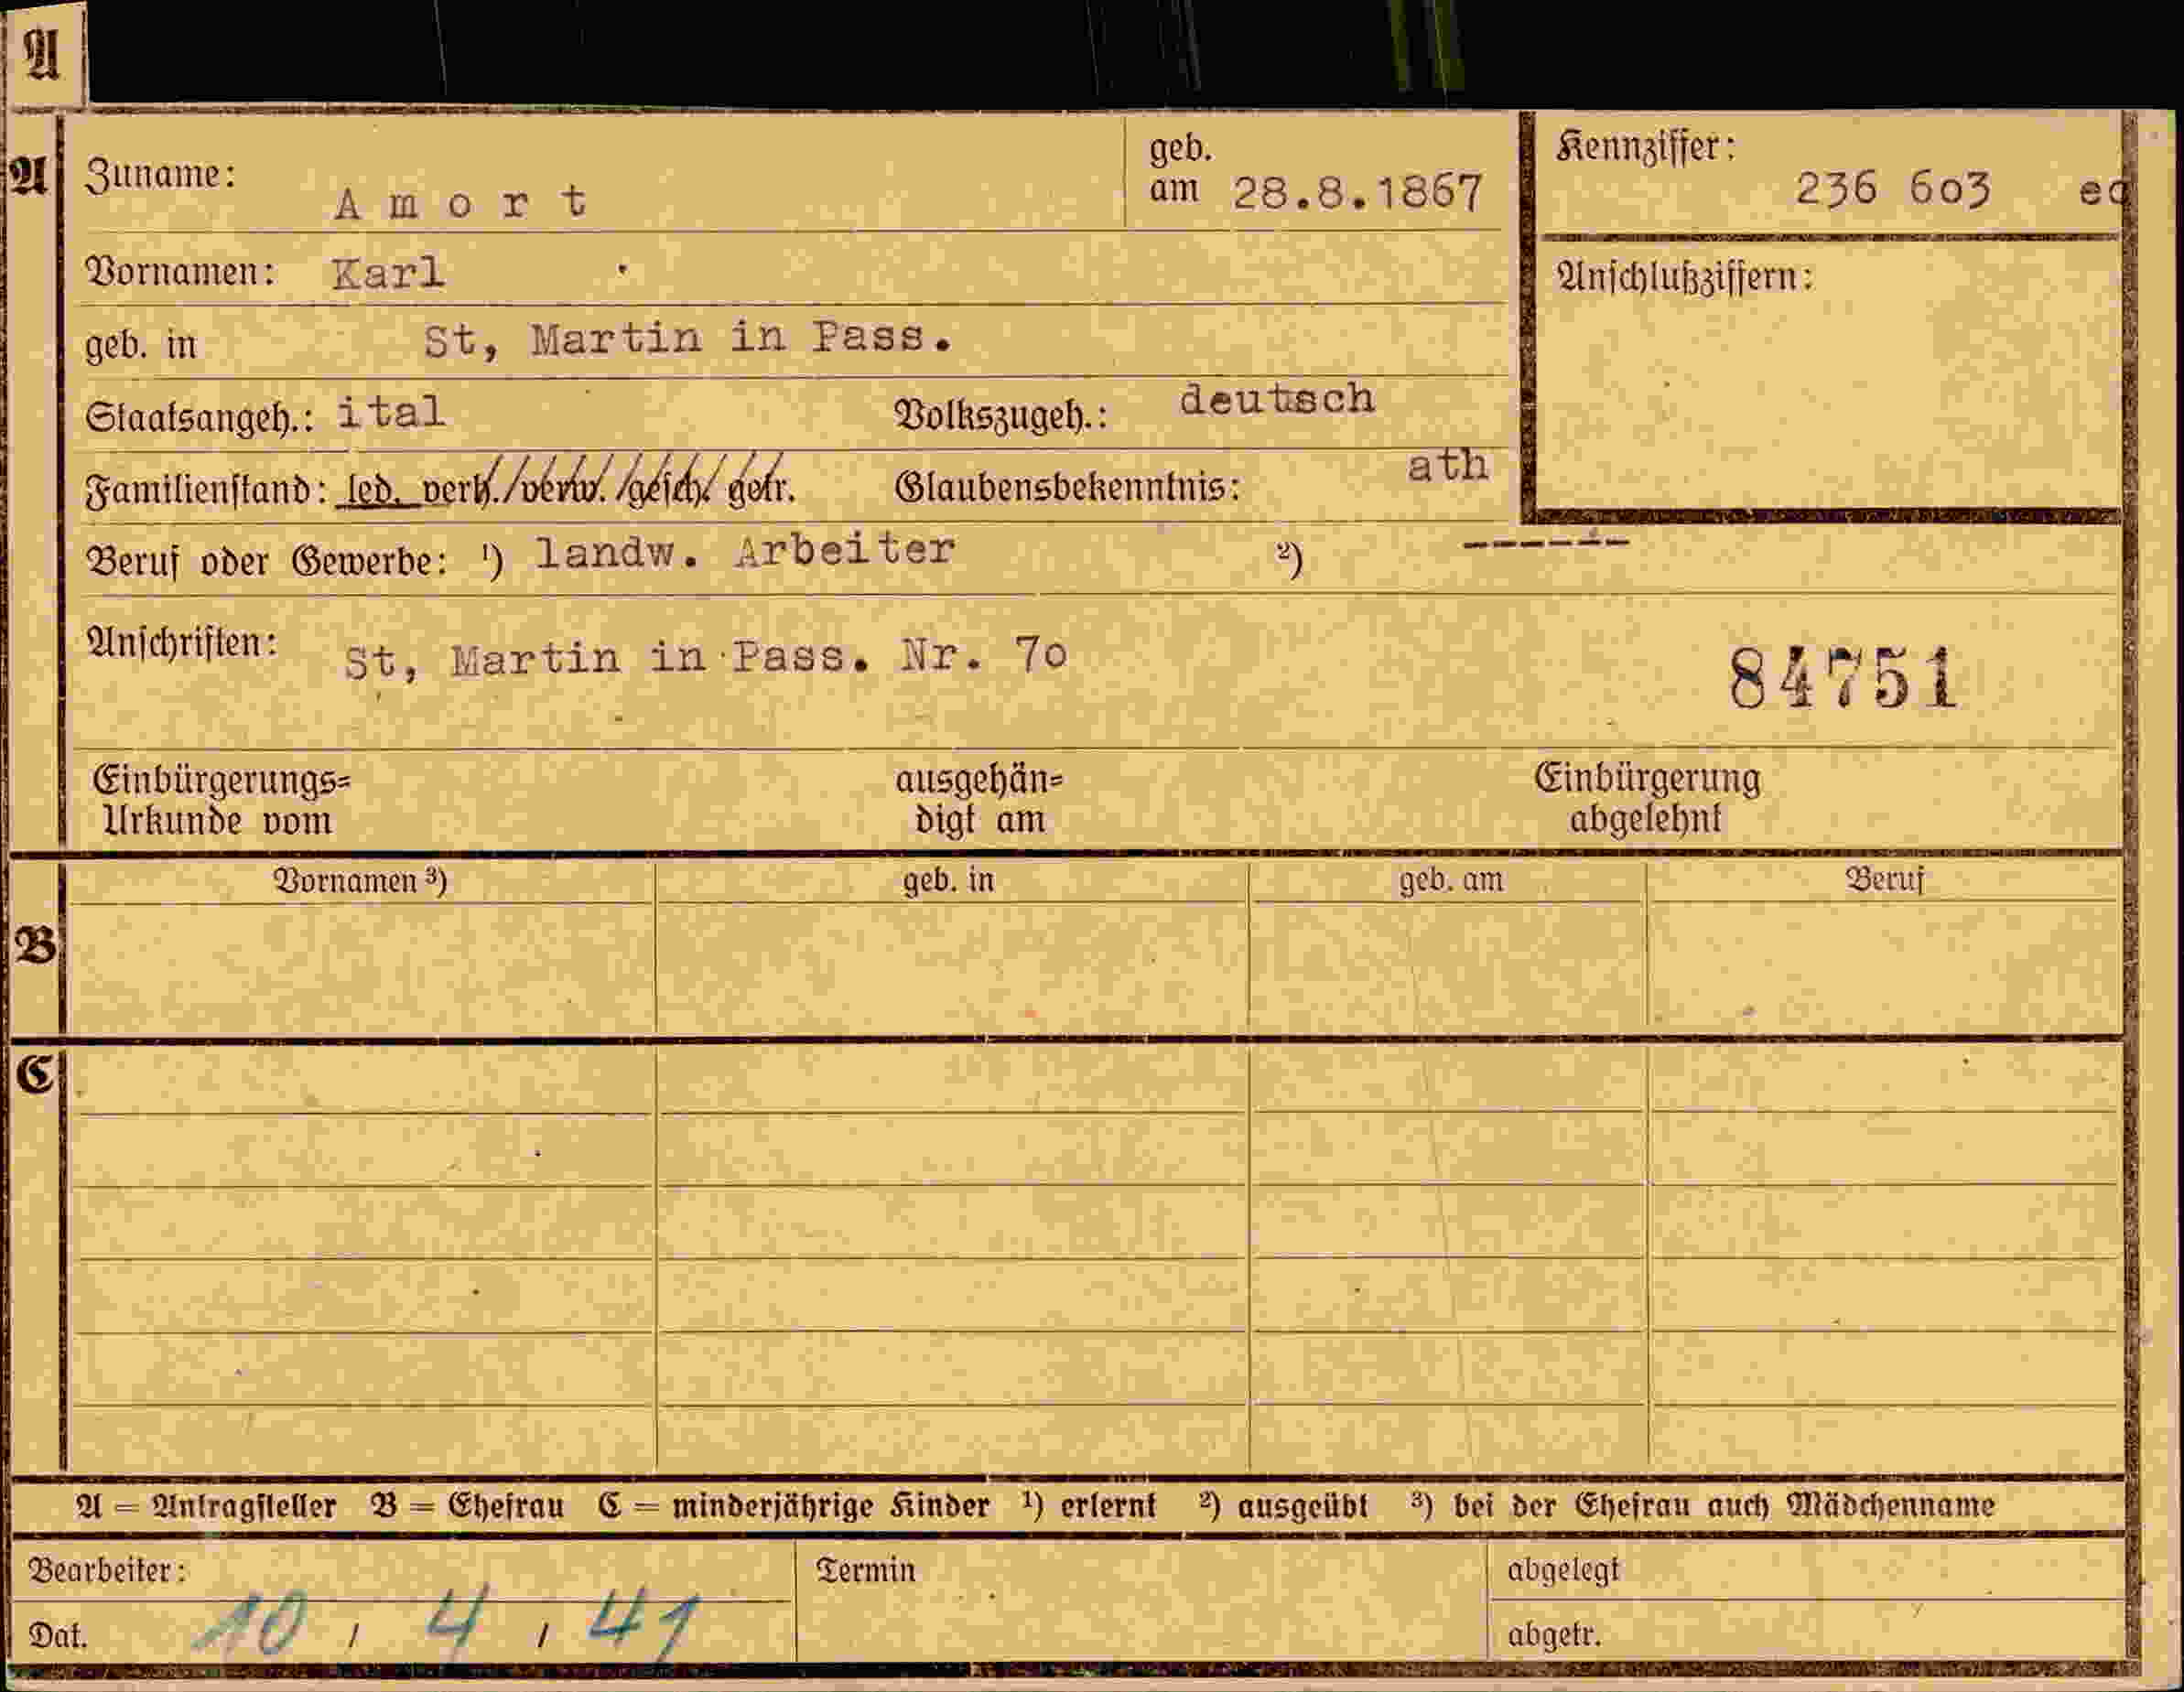 A
A
Zuname: Amort
geb. am 28.8.1867
Kennziffer: 236 603
Vornamen: Karl
Anschlußziffern:
geb. in St, Martin in Pass.
Staatsangeh.: ital Volkszugeh.: deutsch
Familienstand: led. verh./verw./gesch./getr. Glaubensbekenntnis: ath
Beruf oder Gewerbe: ¹) landw. Arbeiter ²) ------
Anschriften: St, Martin in Pass. Nr. 7o
84751
Einbürgerungs=
Urkunde vom
ausgehän=
digt am
Einbürgerung
abgelehnt
Vornamen ³) geb. in geb. am Beruf
B
C
A = Antragsteller B = Ehefrau C = minderjährige Kinder ¹) erlernt ²) ausgeübt ³) bei der Ehefrau auch Mädchenname
Bearbeiter: Termin abgelegt
Dat. 10 / 4 / 41 abgetr.